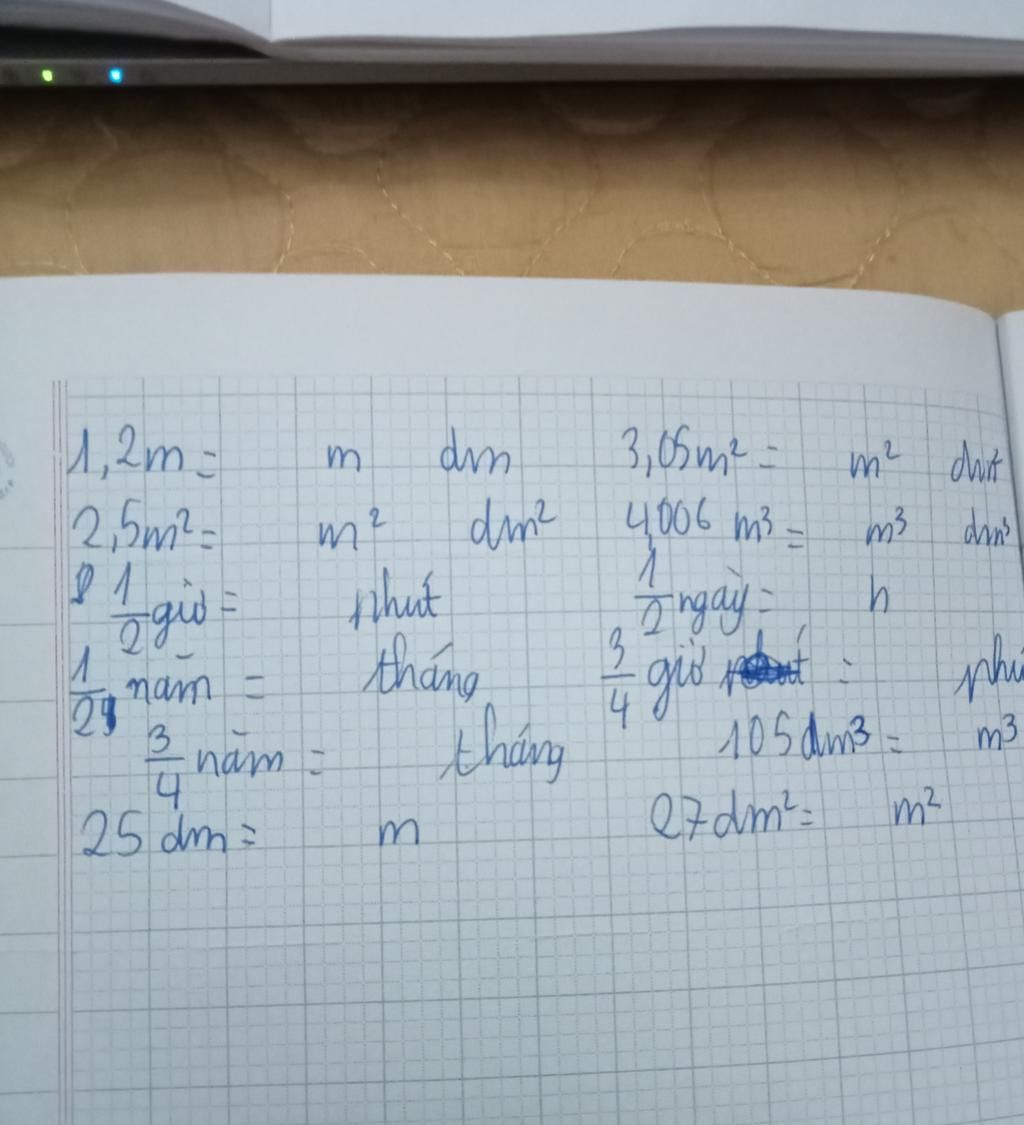 1,2m = m dm 3,05m² = m²
2,5m² = m² dm² 4,006 m³ = m³ dm³
1/2 giờ = phút 1/2 ngày = h
1/2 năm = tháng 3/4 giờ =
3/4 năm = tháng 105dm³ = m³
25 dm = m 27dm² = m²